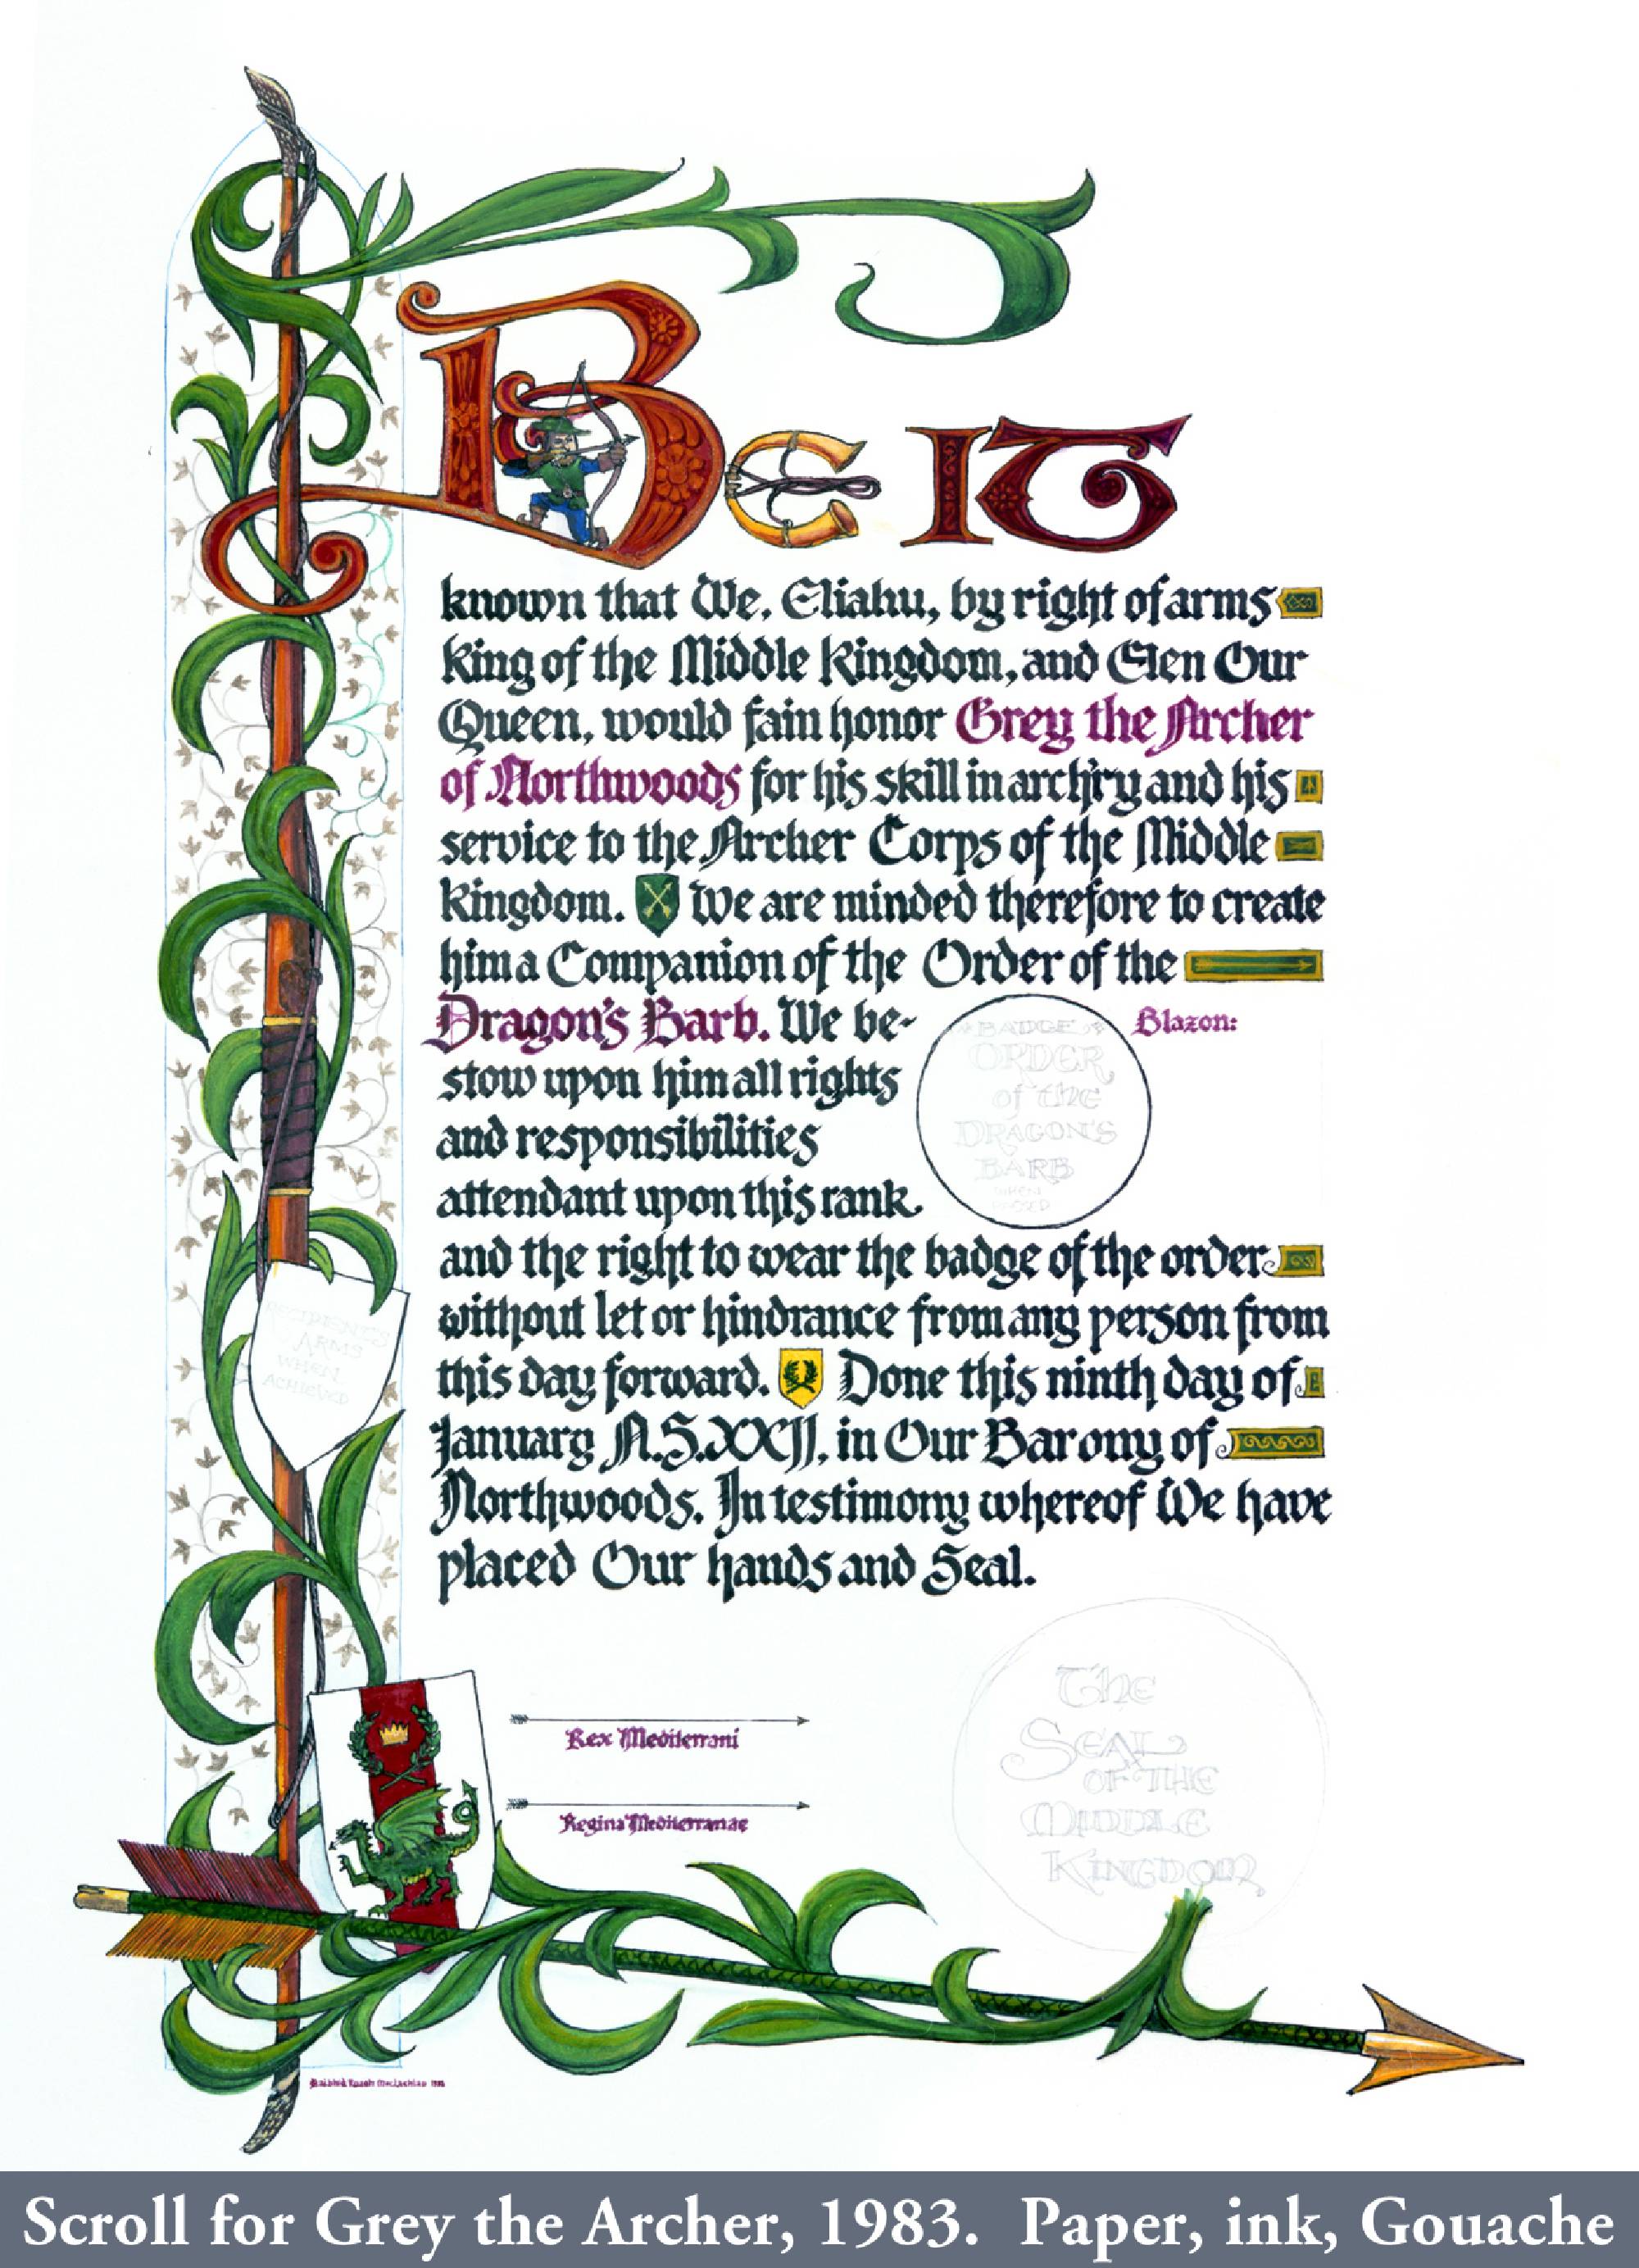 Be It
known that We, Eliahu, by right of arms
King of the Middle Kingdom, and Elen Our
Queen, would fain honor Grey the Archer
of Northwoods for his skill in arch'ry and his
service to the Archer Corps of the Middle
Kingdom. We are minded therefore to create
him a Companion of the Order of the
Dragon's Barb. We be-
stow upon him all rights
and responsibilities
attendant upon this rank
Blazon:
BADGE
ORDER
of the
DRAGON'S
BARB
WHEN
and the right to wear the badge of the order
without let or hindrance from any person from
this day forward. Done this ninth day of
January A.S.XXII, in Our Barony of
Northwoods. In testimony whereof We have
placed Our hands and Seal.
RECIPIENT'S
ARMS
WHEN
ACHIEVED
Rex Mediterrani
Regina Mediterranae
The
Seal
OF THE
MIDDLE
KINGDOM
Scroll for Grey the Archer, 1983. Paper, ink, Gouache